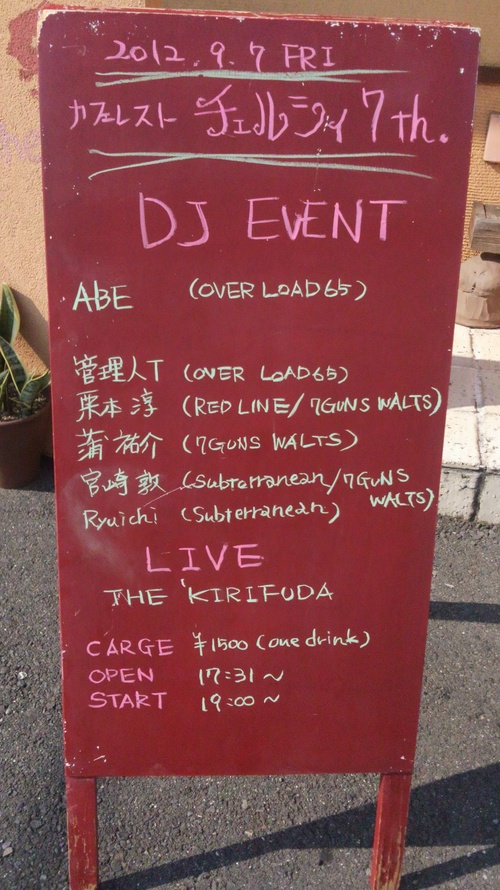 2012.9.7 FRI
カフェレスト チェルシィ 7th.
DJ EVENT
ABE (OVER LOAD 65)
管理人T (OVER LOAD 65)
栗本 淳 (RED LINE/7GUNS WALTS)
蒲 祐介 (7GUNS WALTS)
宮崎 敦 (Subterranean/7GUNS
WALTS)
Ryuichi (Subterranean)
LIVE
THE KIRIFUDA
CARGE ¥1500 (one drink)
OPEN 17:31～
START 19:00～